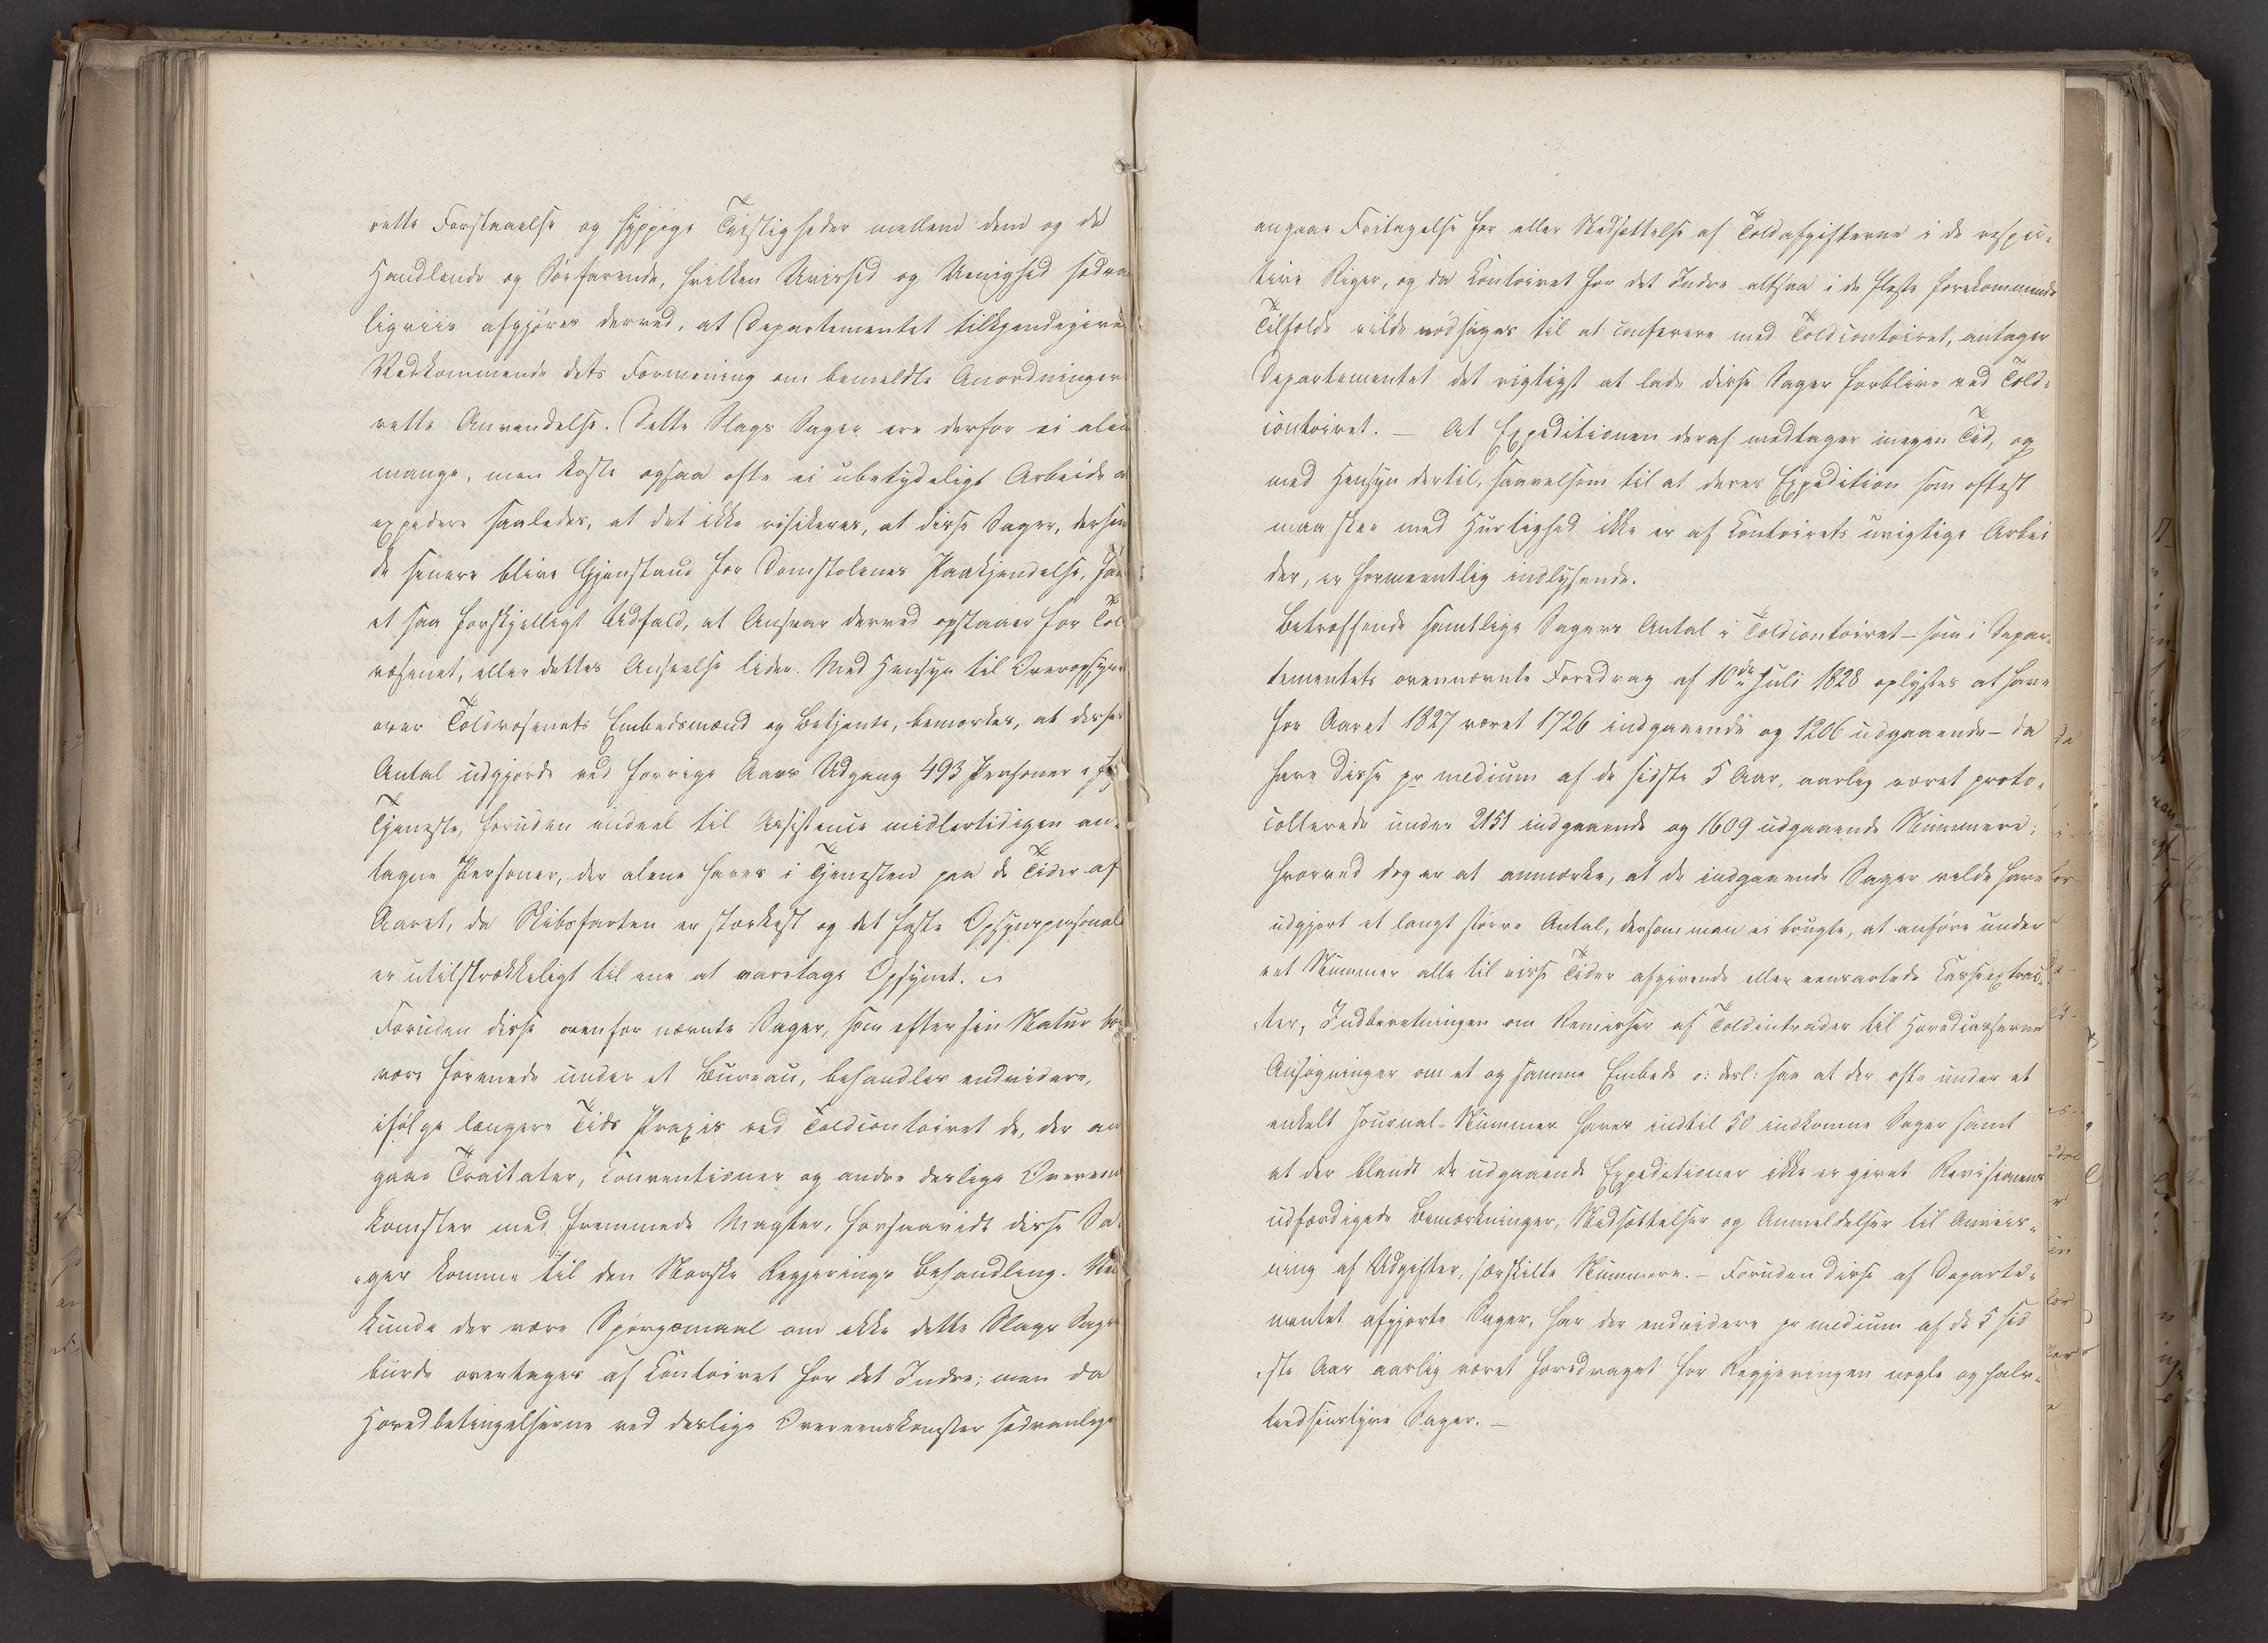 rette Forstaaelse og hyppige Tvistigheder mellem dem og de
Handlende og Söefarende, hvilken Uvished og Uenighed sædvan
ligviis afgjöres derved, at Departementet tilkjendegiver
Vedkommende dets Formening om bemeldte Anordningers
rette Anvendelse. Dette Slags Sager ere derfor ei alene
mange, men koste ogsaa ofte ei ubetydeligt Arbeide at
expedere saaledes, at det ikke risikeres, at disse Sager, dersom
de senere blive Gjenstand for Domstolenes Paakjendelse, faae
et saa forskjelligt Udfald, at Ansvar derved opstaaer for Told
væsenet, eller dettes Anseelse lider. Med Hensyn til Overopsynet
over Toldvæsenets Embedsmænd og Betjente, bemærkes, at disses
Antal udgjorde ved forrige Aars Udgang 493 Personer i fast
Tjeneste, foruden endeel til Assistence midlertidigen an-
tagne Personer, der alene haves i Tjenesten paa de Tider af
Aaret, da Skibsfarten er stærkest og det faste Opsynspersonale
er utilstrækkeligt til ene at varetage Opsynet.
Foruden disse ovenfor nævnte Sager, som efter sin Natur bör
være forenede under et Bureau, behandles endvidere,
ifölge længere Tids Praxis ved Toldcontoiret de, der an
gaae Tractater, Conventioner og andre deslige Overeens
komster med fremmede Magter, forsaavidt disse Sa-
ger komme til den Norske Regjerings Behandling. Vel
kunde der være Spörgsmaal om ikke dette Slags Sager
burde overtages af Contoiret for det Indre; men da
Hovedbetingelserne ved deslige Overeenskomster sædvanlige
angaae Fritagelse for eller Nedsættelse af Toldafgifterne i de respec-
tive Riger, og da Contoiret for det Indre altsaa i de fleste forekommende
Tilfælde vilde nödsages til at conferere med Toldcontoiret, antager
Departementet det rigtigst at lade disse Sager forblive ved Told-
contoiret. — At Expeditionen deraf medtager megen Tid, og
med Hensyn dertil, saavelsom til at deres Expedition som oftest
maa skee med Hurtighed ikke er af Contoirets uvigtige Arbei
der, er formeentlig indlysende.
Betræffende samtlige Sagers Antal i Toldcontoiret – som i Depar-
tementets ovennævnte Foredrag af 10de Juli 1828 oplystes at have
for Aaret 1827 været 1726 indgaaende og 1206 udgaaende – da
have disse pr medium af de sidste 5 Aar, aarlig været proto-
collerede under 2151 indgaaende og 1609 udgaaende Nummere;
hvorved dog er at anmærke, at de indgaaende Sager vilde have
udgjort et langt större Antal, dersom man ei brugte, at anföre under
eet Nummer alle til visse Tider afgivende eller eensartede Casseextrac-
ter, Indberetningen om Remisser af Toldintrader til Hovedcasserne
Ansögninger om et og samme Embede o: desl: saa at der ofte under et
enkelt Journal-Nummer haves indtil 50 indkomne Sager samt
at der blandt de udgaaende Expeditioner ikke er givet Revisionens
udfærdigede Bemærkninger, Nedsættelser og Anmeldelser til Anviis-
ning af Udgifter, særskilte Nummere. – Foruden disse af Departe-
mentet afgjorte Sager, har der endvidere pr medium af de 5 sid
ste Aar aarlig været foredraget for Regjeringen nogle og halv-
tredsindstyve Sager. –